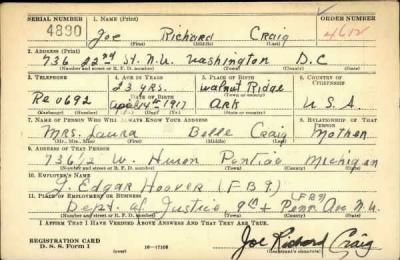 SERIAL NUMBER 1. NAME (Print) ORDER NUMBER
4890 Joe Richard Craig 4612
(First) (Middle) (Last)
2. ADDRESS (Print)
736 22nd St. N.W. Washington D.C
(Number and street or R. F. D. number) (Town) (County) (State)
3. TELEPHONE 4. AGE IN YEARS 5. PLACE OF BIRTH 6. COUNTRY OF CITIZENSHIP
23 yrs. Walnut Ridge
DATE OF BIRTH (Town or county)
Re 0692 April 4th 1917 Ark U.S.A.
(Exchange) (Number) (Mo.) (Day) (Yr.) (State or country)
7. NAME OF PERSON WHO WILL ALWAYS KNOW YOUR ADDRESS 8. RELATIONSHIP OF THAT PERSON
Mrs. Laura Belle Craig Mother
(Mr., Mrs., Miss) (First) (Middle) (Last)
9. ADDRESS OF THAT PERSON
736 1/2 W. Huron Pontiac Michigan
(Number and street or R. F. D. number) (Town) (County) (State)
10. EMPLOYER'S NAME
J. Edgar Hoover (FBI)
11. PLACE OF EMPLOYMENT OR BUSINESS (FBI)
Dept. of Justice 9th + Penn Ave N.W.
(Number and street or R. F. D. number) (Town) (County) (State)
I AFFIRM THAT I HAVE VERIFIED ABOVE ANSWERS AND THAT THEY ARE TRUE.
REGISTRATION CARD
D. S. S. Form 1 16—17105 Joe Richard Craig
(over) (Registrant's signature)